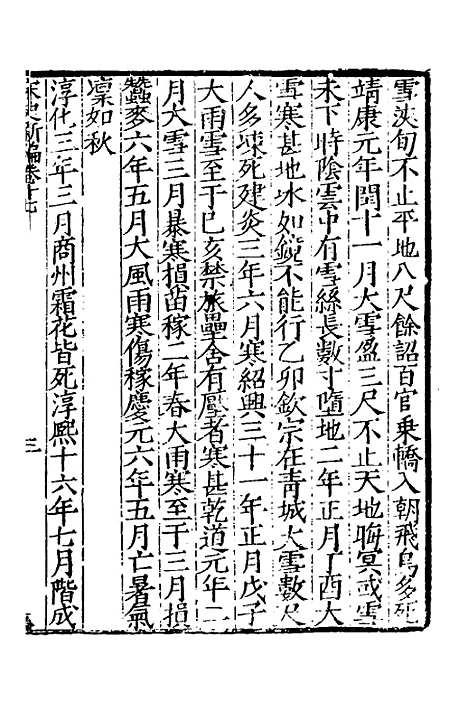 雪浹旬不止平地八尺餘詔百官乗轎入朝飛鳥多死
靖康元年閏十一月大雪盈三尺不止天地晦冥或雪
未下時陰雲中有雪絲長數寸墮地二年正月丁酉大
雪寒甚地氷如鏡不能行乙卯欽宗在青城大雪數尺
人多凍死建炎三年六月寒紹興三十一年正月戊子
大雨雪至于巳亥禁旅壘舍有壓者寒甚乾道元年二
月大雪三月暴寒損苗稼二年春大雨寒至于三月損
蠶麥六年五月大風雨寒傷稼慶元六年五月亡暑氣
凛如秋
淳化三年三月商州霜花皆死淳熙十六年七月階成
宋史新編卷十七
三